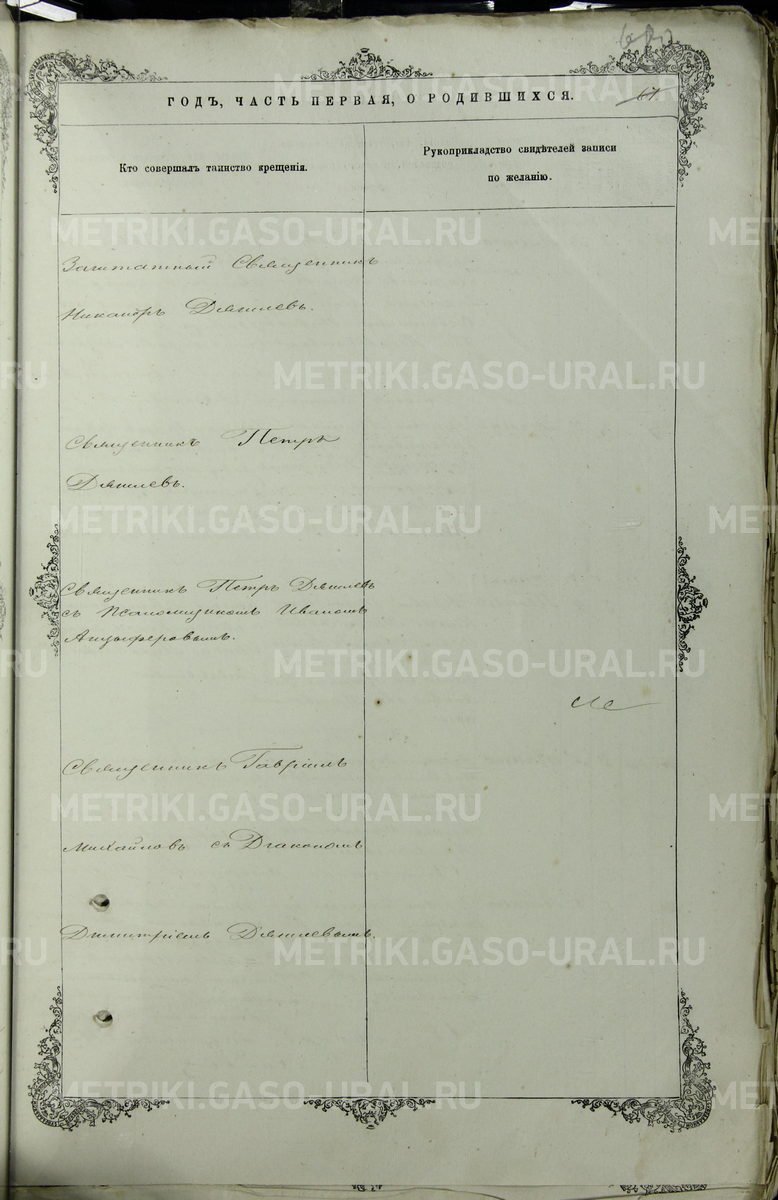 ГОДЪ, ЧАСТЬ ПЕРВАЯ, О РОДИВШИХСЯ.
67.
Кто совершалъ таинство крещенія.
Рукоприкладство свидѣтелей записи
по желанію.
Заштатный Священникъ
Никаноръ
Священникъ Петръ
Священникъ Петръ
съ Псаломщикомъ Иваномъ
Анцыферовымъ.
Священникъ Гавріилъ
Михайловъ съ Діакономъ
Димитріемъ
METRIKI.GASO-URAL.RU